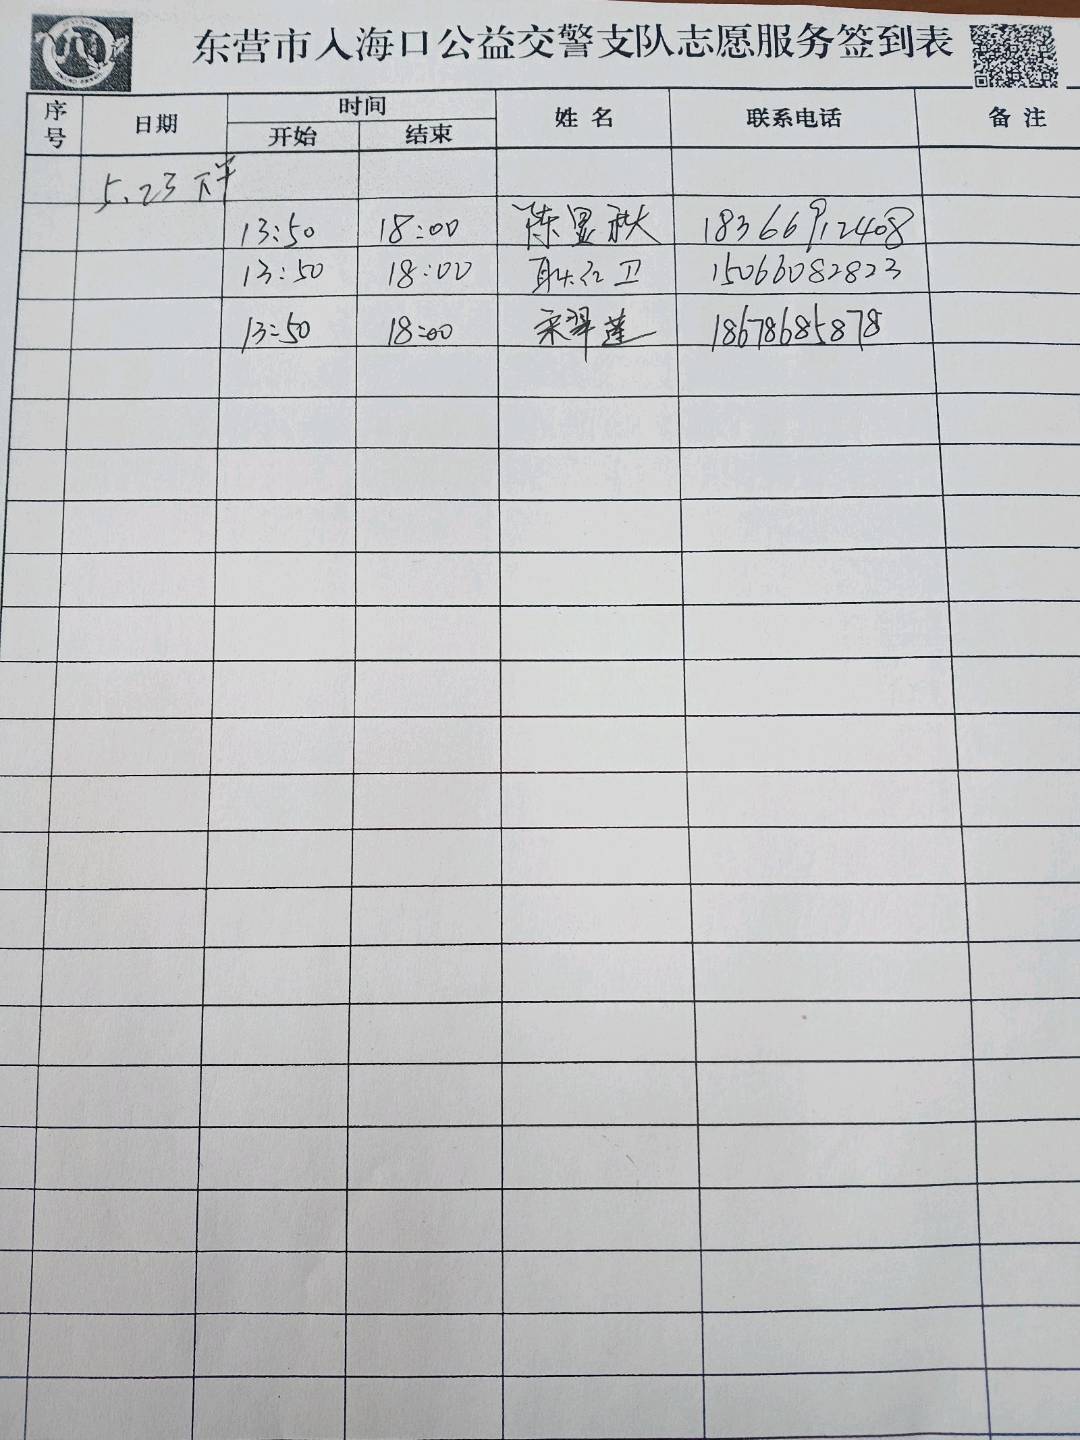 东营市入海口公益交警支队志愿服务签到表
序号 日期 时间 姓名 联系电话 备注
开始 结束
5.23 下午
13:50 18:00 陈显秋 18366912408
13:50 18:00 耿红卫 15066082823
13:50 18:00 宋翠莲 18678685878